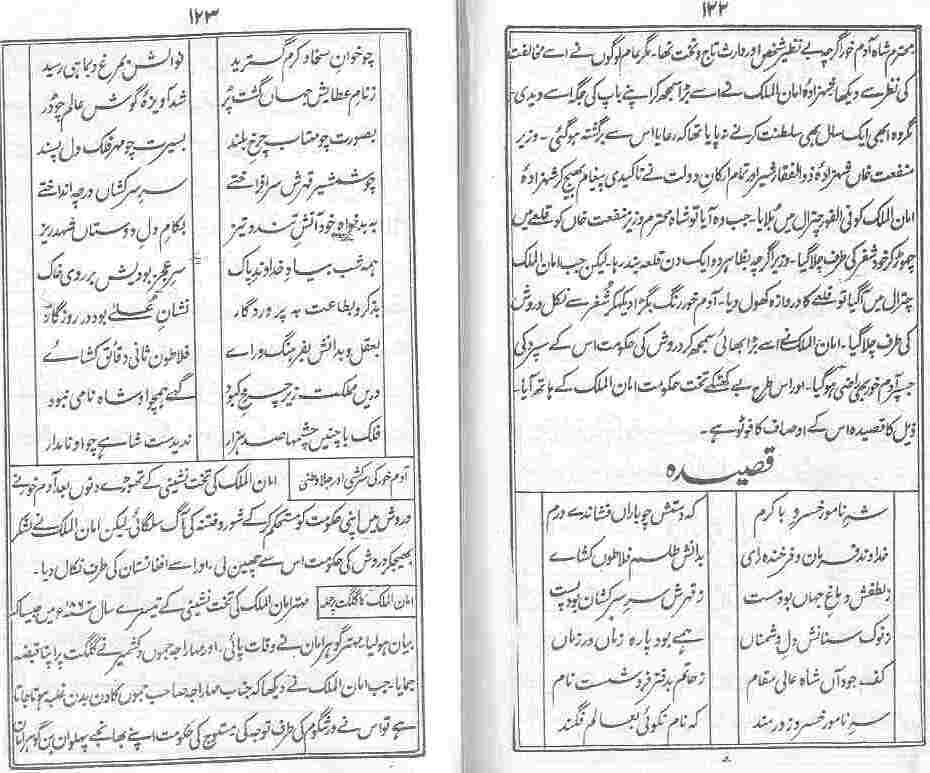 ۱۲۲
محترم شاہ آدم خور اگرچہ بے نظیر شخص اور وارث تاج و تخت تھا۔ مگر عام لوگوں نے اسے مخالفت
کی نظر سے دیکھا شہزادہ امان الملک نے اسے بڑا سمجھ کر اپنے باپ کی جگہ اسے دیدی۔
مگر وہ ابھی ایک سال بھی سلطنت کرنے نہ پایا تھا کہ رعایا اس سے برگشتہ ہو گئی۔ وزیر
منفعت خاں شہزادہ ذوالفقار شیر اور تمام ارکان دولت نے تاکیدی پیغام بھیج کر شہزادہ
امان الملک کو فی الفور چترال میں بلایا۔ جب وہ آیا تو شاہ محترم وزیر منفعت خاں کو قلعے میں
چھوڑ کر خود شغر کی طرف چلا گیا۔ وزیر اگرچہ بظاہر دو ایک دن قلعہ بند رہا۔ لیکن جب امان الملک
چترال میں آ گیا تو قلعے کا دروازہ کھول دیا۔ آدم خور رنگ بگڑا دیکھ کر شغر سے نکل دروش
کی طرف چلا گیا۔ امان الملک نے اسے بڑا بھائی سمجھ کر دروش کی حکومت اس کے سپرد کی
جسپر آدم خور بھی راضی ہو گیا۔ اور اس طرح بے کھٹکے تخت حکومت امان الملک کے ہاتھ آیا۔
ذیل کا قصیدہ اس کے اوصاف کا فوٹو ہے۔
قصیدہ
شہِ نامور خسروِ با کرم کہ دستش چو باراں فشاندے درم
خداوند فرمان و فرخندہ رای بدانش طلسم فلاطوں کشاے
ز لطفش دماغ جہاں بود مست ز قہرش سرِ سرکشاں بود پست
ز نوک سنانش دلِ دشمناں ہمے بود پارہ زماں در زماں
کف جود آں شاہ عالی مقام ز حاتم بدفتر فروشست نام
سرِ نامور خسرو زورمند کہ نام نکوئی بعالم فگند
۱۲۳
چو خوانِ سخا و کرم گسترید نوالش بمرغ و بماہی رسید
ز نامِ عطایش جہاں گشت پُر شد آویزۂ گوش عالم چو دُر
بصورت چو مہتاب چرخ بلند بسیرت چو مہر فلک دل پسند
چو شمشیر قہرش سر افراختے سرِ سرکشاں در چہ انداختے
بہ بدخواہ خود آتشِ تند و تیز بکامِ دلِ دوستاں شہد ریز
ہمہ شب بیادِ خداوندِ پاک سرِ عجز بودیش بر روی خاک
بذکر و بطاعت بہ پروردگار نشانِ علیؓ بود در روزگار
بعقل و بدانش بفرہنگ و راے فلاطون ثانی دقائق کشاے
دریں مملکت زیر چرخ کبود گہے ہمچو او شاہ نامی نبود
فلک با چنیں چشمہا صد ہزار ندیدست شاہے چو او نامدار
آدم خور کی سرکشی اور جلا وطنی امان الملک کی تخت نشینی کے تھوڑے دنوں بعد آدم خور نے
دروش میں اپنی حکومت کو مستحکم کر کے شور و فتنہ کی آگ سلگائی لیکن امان الملک نے لشکر
بھیجکر دروش کی حکومت اس سے چھین لی۔ اور اسے افغانستان کی طرف نکال دیا۔
امان الملک کا گلگت پر حملہ مہتر امان الملک کی تخت نشینی کے تیسرے سال میں جیسا کہ
بیان ہو لیا۔ مہتر گوہر امان نے وفات پائی۔ اور مہاراجہ جموں و کشمیر نے گلگت پر اپنا قبضہ
جمایا۔ جب امان الملک نے دیکھا کہ جناب مہاراجہ صاحب جموں کا دن بدن غلبہ ہوتا جاتا
ہے تو اس نے ورشگوم کی طرف توجہ کی مستوج کی حکومت اپنے بھانجے پہلوان بن گوہر امان